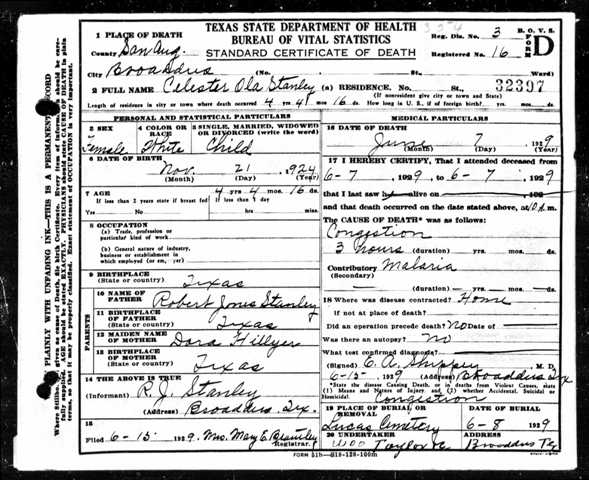 TEXAS STATE DEPARTMENT OF HEALTH
BUREAU OF VITAL STATISTICS
STANDARD CERTIFICATE OF DEATH
Reg. Dis. 3
Registered No. 16
B. O. V. S.
FORM
D
32397
1 PLACE OF DEATH
County San Aug.
City Broaddus (No. St., Ward)
2 FULL NAME Celester Ola Stanley (a) RESIDENCE. No. St.,
(If nonresident give city or town and State)
Length of residence in city or town where death occurred 4 yrs. 4 mos. 16 ds. How long in U. S., if of foreign birth? yrs. mos. ds.
PERSONAL AND STATISTICAL PARTICULARS
3 SEX Female
4 COLOR OR RACE White
5 SINGLE, MARRIED, WIDOWED OR DIVORCED (write the word) Child
6 DATE OF BIRTH
Nov. 21 1924
(Month) (Day) (Year)
7 AGE 4 ys. 4 mos. 16 ds.
If less than 2 years state if breast fed
If less than 1 day
Yes No hrs. min.
8 OCCUPATION
(a) Trade, profession or particular kind of work
(b) General nature of industry, business or establishment in which employed (or em, yer)
9 BIRTHPLACE
(State or country) Texas
PARENTS
10 NAME OF FATHER Robert Jones Stanley
11 BIRTHPLACE OF FATHER
(State or country) Texas
12 MAIDEN NAME OF MOTHER Dora Hillyer
13 BIRTHPLACE OF MOTHER
(State or country) Texas
14 THE ABOVE IS TRUE
(Informant) R. J. Stanley
(Address) Broaddus, Tex.
15
Filed 6-15- 1929. Mrs. Mary E. Brantley
Registrar.
MEDICAL PARTICULARS
16 DATE OF DEATH
June 7 1929
(Month) (Day) (Year)
17 I HEREBY CERTIFY, That I attended deceased from
6-7 1929 to 6-7 1929
that I last saw h alive on
and that death occurred on the date stated above, at 10 A. m.
The CAUSE OF DEATH* was as follows:
Congestion
3 hours (duration) yrs. mos. ds.
Contributory Malaria
(Secondary)
(duration) yrs. mos. ds.
18 Where was disease contracted? Home
if not at place of death?
Did an operation precede death? No Date of
Was there an autopsy? No
What test confirmed diagnosis?
(Signed) M. D.
6-15- 1929 (Address) Broaddus Tex
*State the disease Causing Death, or in deaths from Violent Causes, state (1) Means and Nature of Injury and (2) whether Accidental, Suicidal or Homicidal.
Congestion
19 PLACE OF BURIAL OR REMOVAL
Lucas Cemetery
DATE OF BURIAL
6-8 1929
20 UNDERTAKER
Taylor
ADDRESS
Broaddus Tex